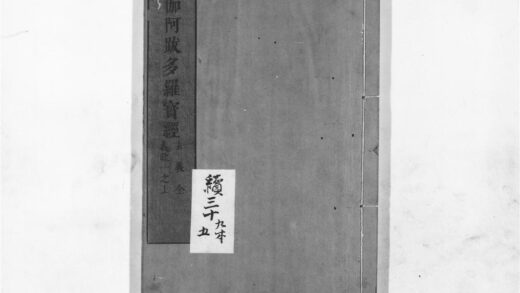 伽阿跋多羅寶經
義全
之上
續三十
九本
五